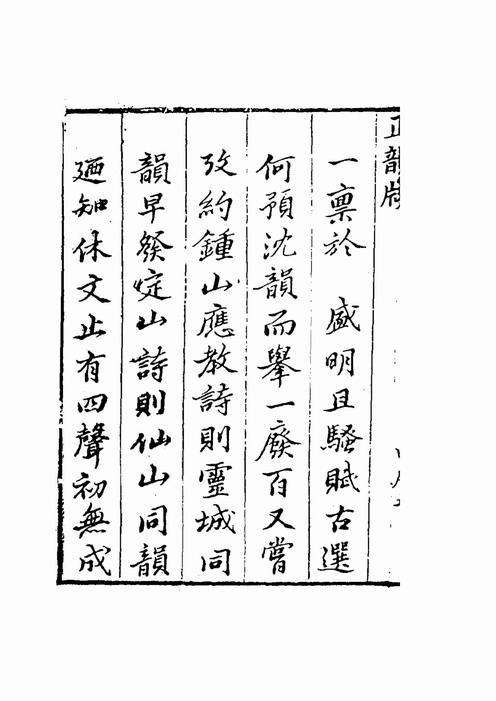 正韻牋
一稟於　盛明且騷賦古選
何預沈韻而舉一廢百又嘗
攷約鍾山應教詩則靈城同
韻早發定山詩則仙山同韻
廼知休文止有四聲初無成